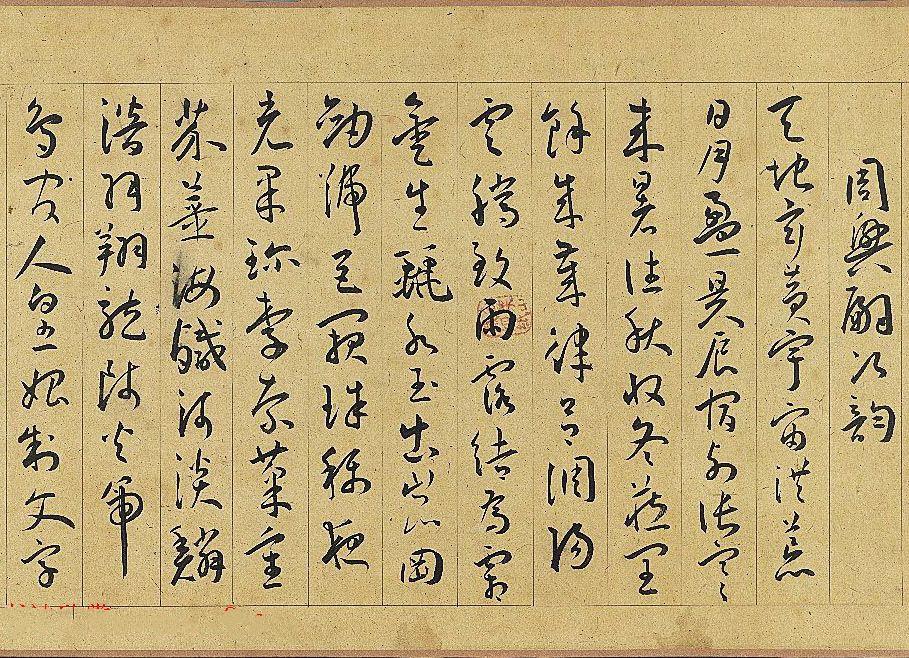 周興嗣次韵
天地玄黃宇宙洪荒
日月盈昃辰宿列張寒
來暑往秋收冬藏閏
餘成歲律呂調陽
雲騰致雨露結為霜
金生麗水玉出崑岡
劍號巨闕珠稱夜
光果珍李柰菜重
芥薑海鹹河淡鱗
潛羽翔龍師火帝
鳥官人皇始制文字